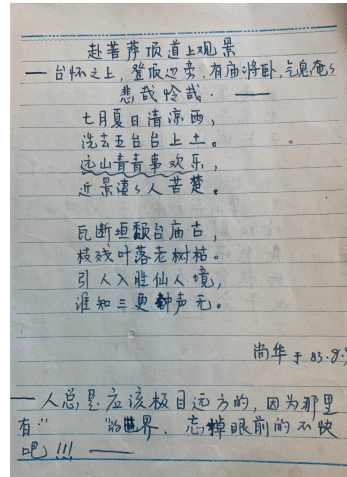 赴菩萨顶道上观景
— 台怀之上，登顶边旁，有庙将卧，气息奄々
悲哉怜哉． —
七月夏日清凉雨，
洗去五台台上土。
远山青青事欢乐，
近景凄々人苦楚。
瓦断垣颓台庙古，
枝残叶落老树枯。
引人入胜仙人境，
谁知三更钟声无。
尚华 于 83.8.
— 人总是应该极目远方的，因为那里
有“ ”的世界．忘掉眼前的不快
吧!!! —